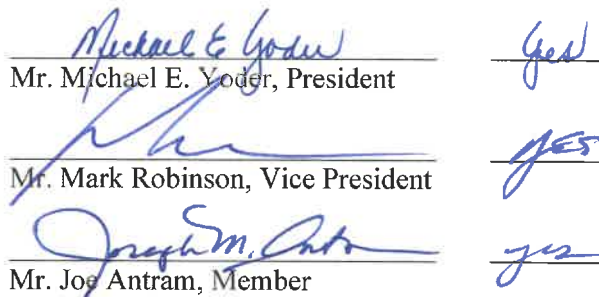 Michael E Yoder yes
Mr. Michael E. Yoder, President
YES
Mr. Mark Robinson, Vice President
Joseph M. Antr yes
Mr. Joe Antram, Member